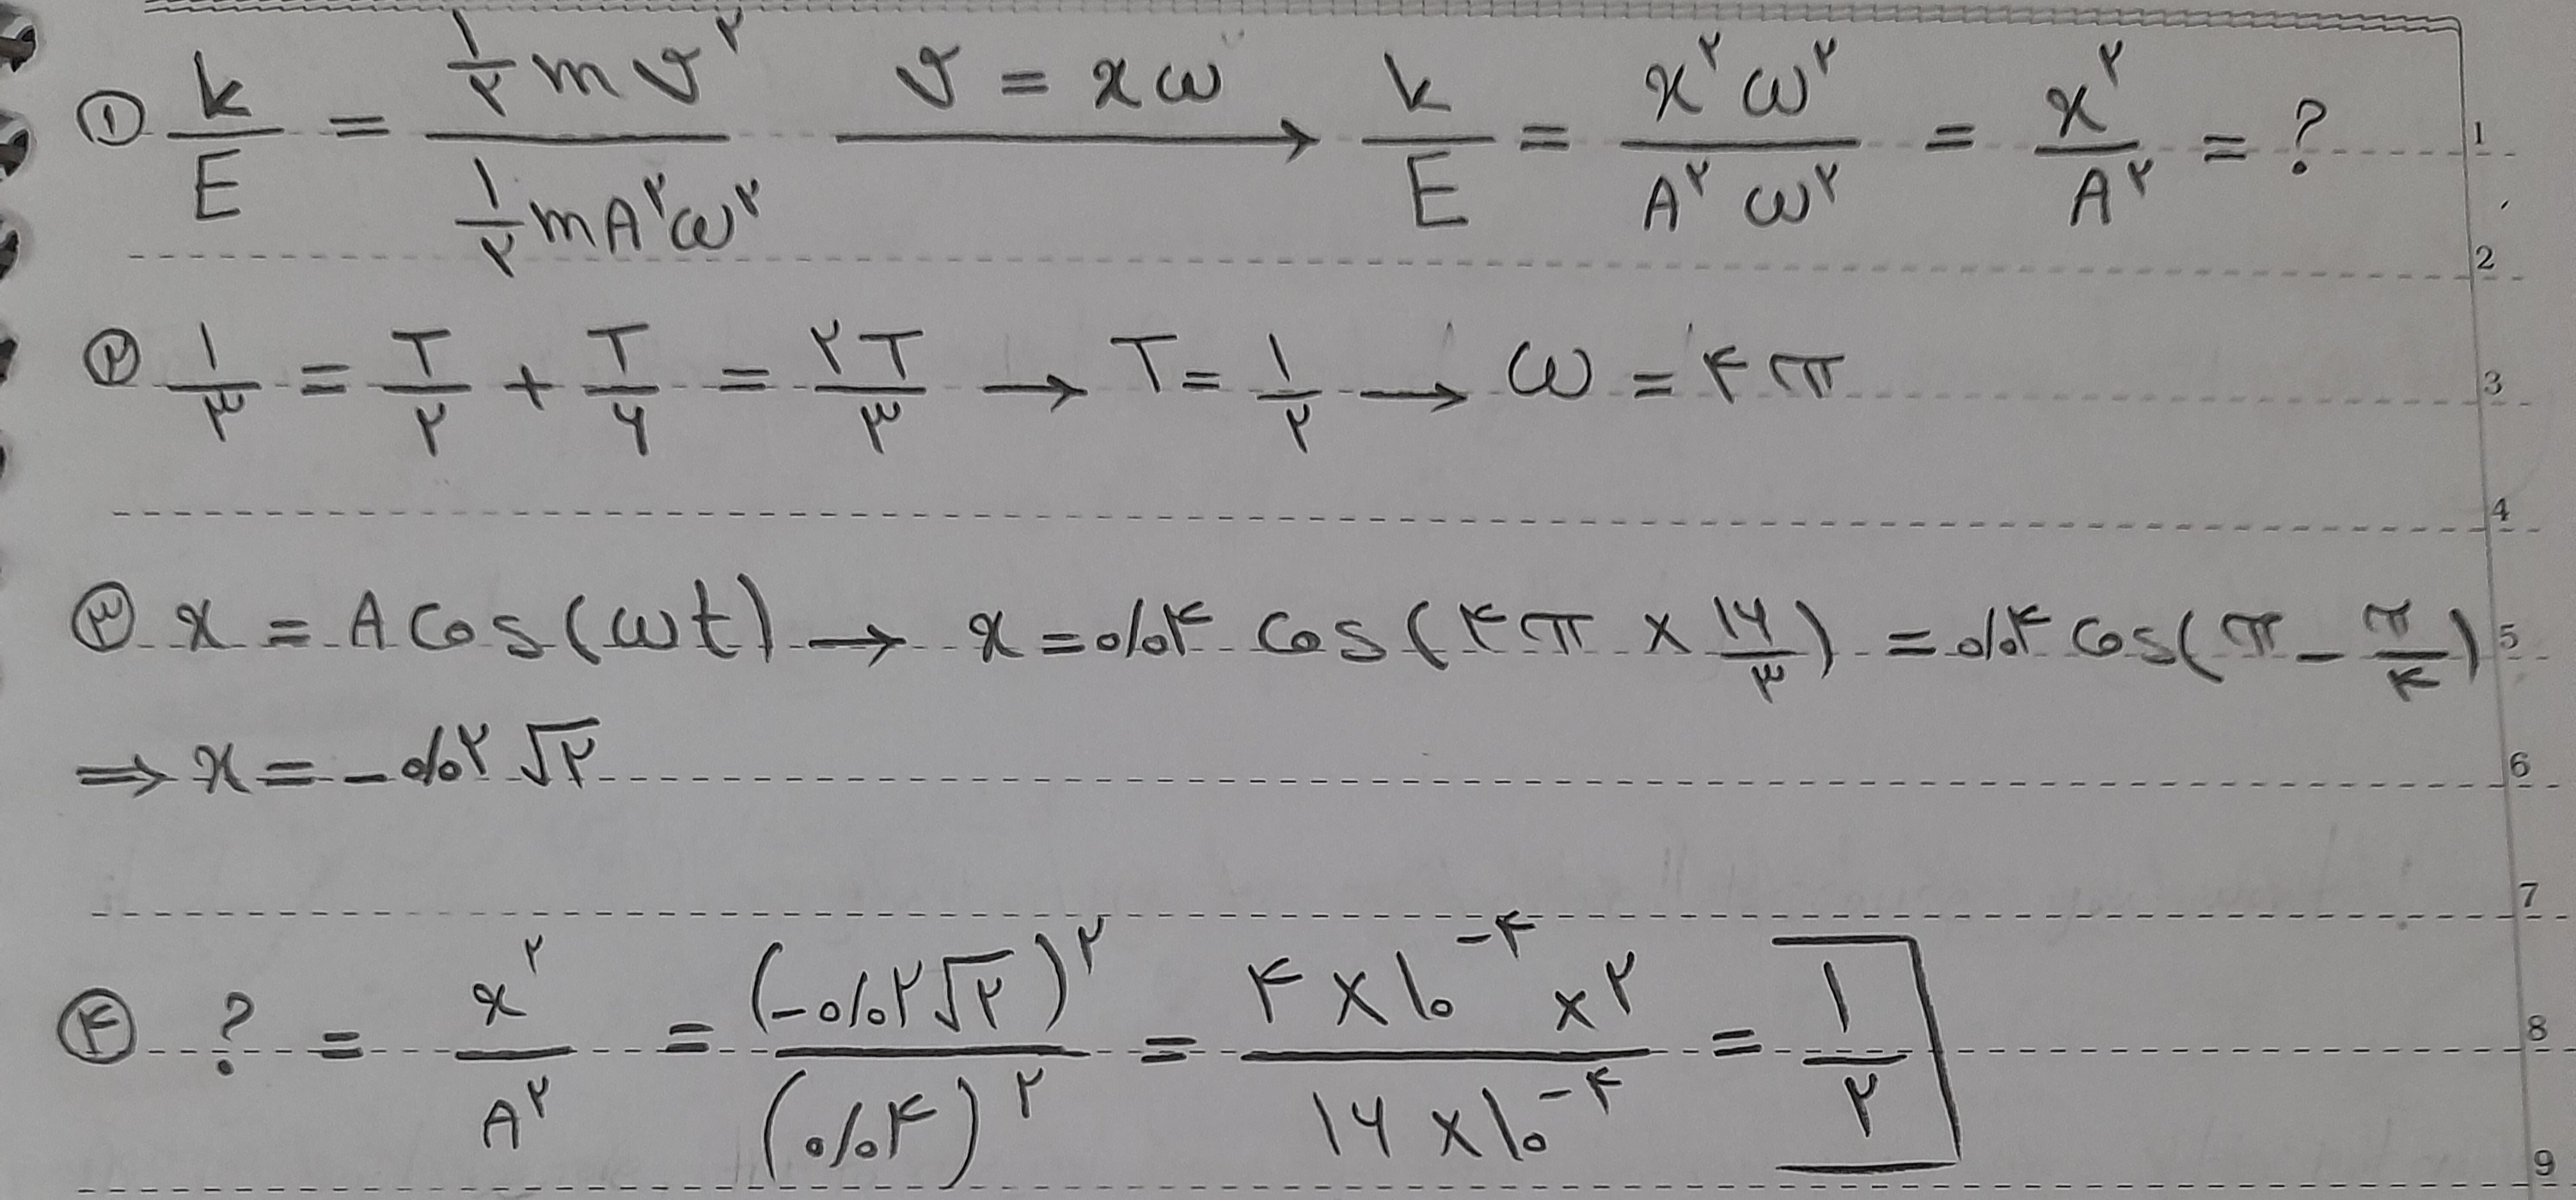 ① k/E = (۱/۲ m v^۲)/(۱/۲ m A^۲ ω^۲) v = xω → k/E = (x^۲ ω^۲)/(A^۲ ω^۲) = x^۲/A^۲ = ? 1
2
② ۱/۳ = T/۲ + T/۶ = ۲T/۳ → T = ۱/۲ → ω = ۴π 3
4
③ x = A Cos(ωt) → x = ۰/۰۴ Cos(۴π × ۱۶/۳) = ۰/۰۴ Cos(π − π/۴) 5
⇒ x = −۰/۰۲√۲ 6
7
④ ? = x^۲/A^۲ = (−۰/۰۲√۲)^۲/(۰/۰۴)^۲ = (۴ × ۱۰^−۴ × ۲)/(۱۶ × ۱۰^−۴) = ۱/۲ 8
9